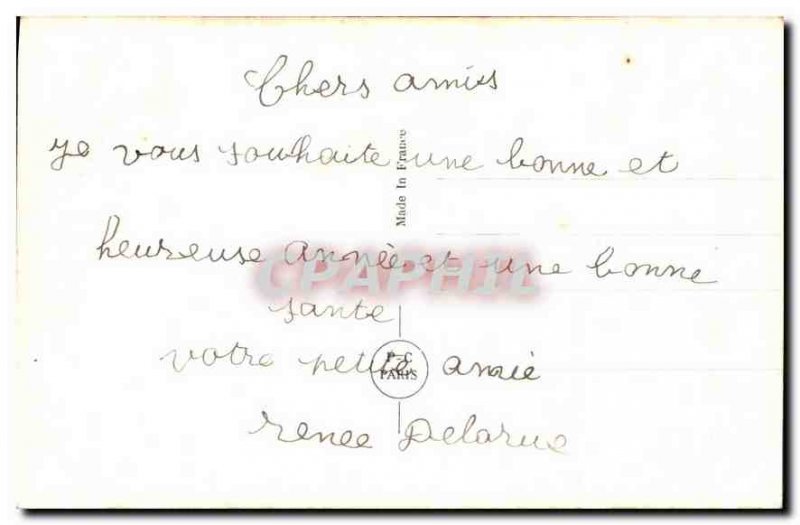 Chers amis
je vous souhaite une bonne et
Made In France
heureuse année et une bonne
CPAPHIL
sante
votre petite amie
P-C
PARIS
renee Delarue